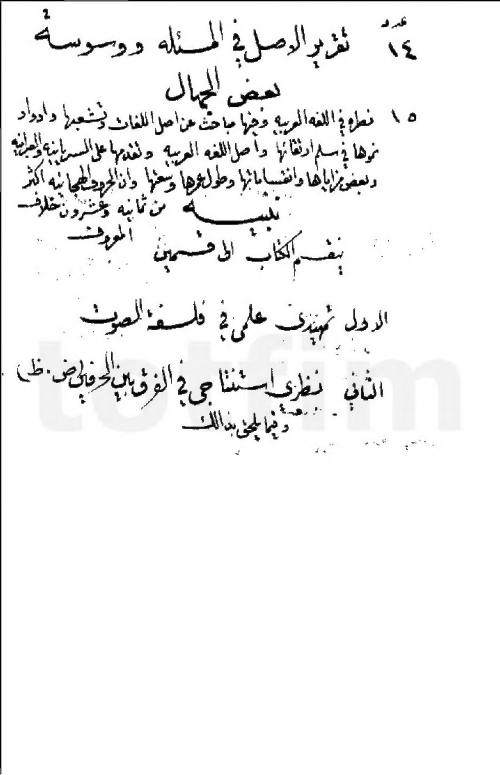 عدد
١٤ تقرير الاصل في المسئله ووسوسة
بعض الجهال
١٥ نظره في اللغه العربيه وفيها مباحث عن اصل اللغات وتشعبها وادوار
نموها في سلم ارتقائها واصل اللغه العربيه وتقدمها على السريانيه والعبرانيه
وبعض مزاياها وانقساماتها وطول عمرها وسعتها وان الحروف الهجائيه اكثر
من ثمانيه وعشرون خلاف
المعروف
تنبيه
ينقسم الكتاب الى قسمين
الاول تمهيدي علمي في فلسفة الصوت
الثاني نظري استنتاجي في الفرق بين الحرفين (ض. ظ)
وفيما يلحق بذالك
totfim